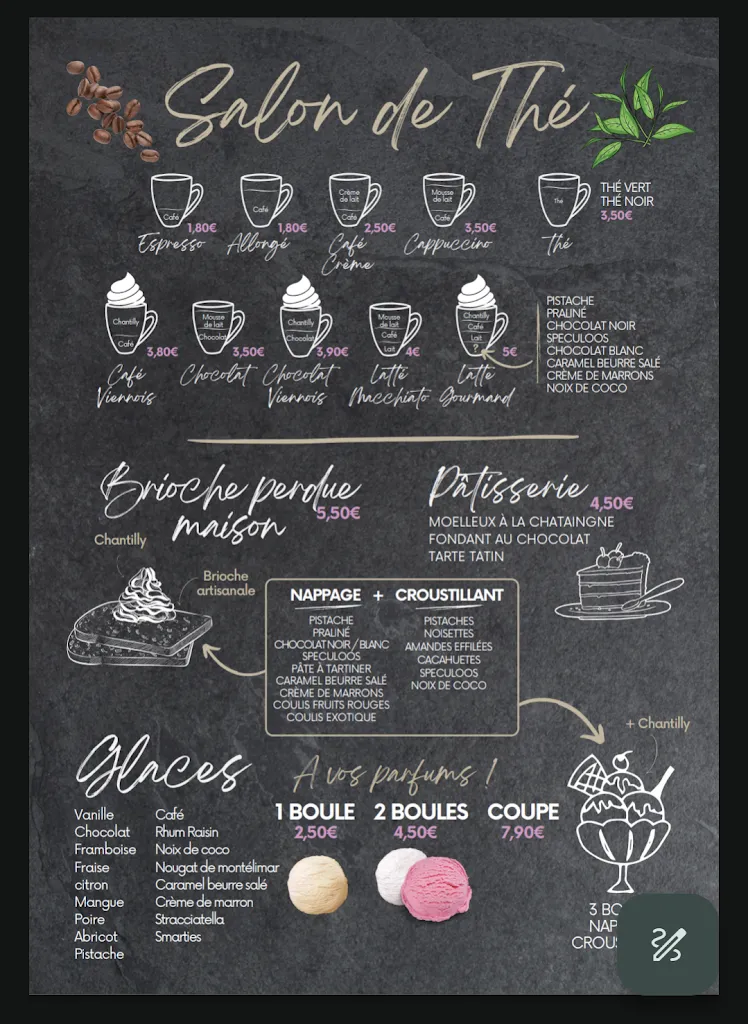 Salon de Thé
Café
Café
Crème
de lait
Café
Mousse
de lait
Café
Thé
THÉ VERT
THÉ NOIR
3,50€
1,80€
1,80€
2,50€
3,50€
Espresso
Allongé
Café
Crème
Cappuccino
Thé
Chantilly
Café
Mousse
de lait
Chocolat
Chantilly
Chocolat
Mousse
de lait
Café
Lait
Chantilly
Café
Lait
?
3,80€
3,50€
3,90€
4€
5€
Café
Viennois
Chocolat
Chocolat
Viennois
Latte
Macchiato
Latte
Gourmand
PISTACHE
PRALINÉ
CHOCOLAT NOIR
SPECULOOS
CHOCOLAT BLANC
CARAMEL BEURRE SALÉ
CRÈME DE MARRONS
NOIX DE COCO
Brioche perdue
maison
5,50€
Chantilly
Brioche
artisanale
Pâtisserie
4,50€
MOELLEUX À LA CHATAINGNE
FONDANT AU CHOCOLAT
TARTE TATIN
NAPPAGE + CROUSTILLANT
PISTACHE
PRALINÉ
CHOCOLAT NOIR / BLANC
SPECULOOS
PÂTE À TARTINER
CARAMEL BEURRE SALÉ
CRÈME DE MARRONS
COULIS FRUITS ROUGES
COULIS EXOTIQUE
PISTACHES
NOISETTES
AMANDES EFFILÉES
CACAHUETES
SPECULOOS
NOIX DE COCO
Glaces
A vos parfums !
Vanille
Chocolat
Framboise
Fraise
citron
Mangue
Poire
Abricot
Pistache
Café
Rhum Raisin
Noix de coco
Nougat de montélimar
Caramel beurre salé
Crème de marron
Stracciatella
Smarties
1 BOULE
2,50€
2 BOULES
4,50€
COUPE
7,90€
+ Chantilly
3